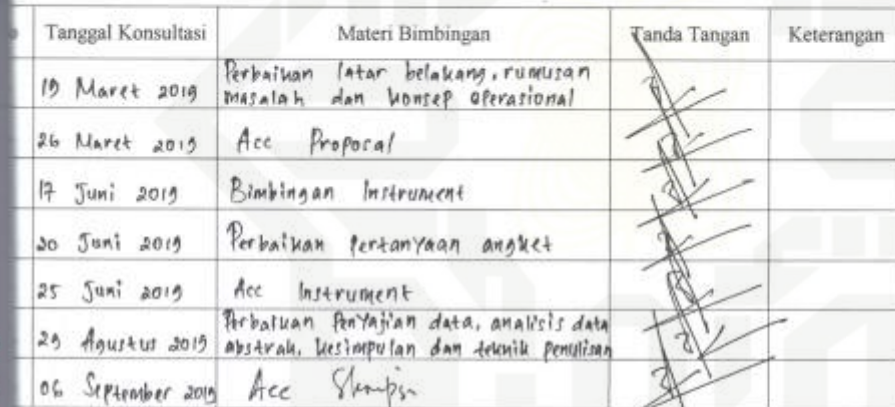 Tanggal Konsultasi Materi Bimbingan Tanda Tangan Keterangan
19 Maret 2019 Perbaikan latar belakang, rumusan
masalah dan konsep operasional
26 Maret 2019 Acc Proposal
17 Juni 2019 Bimbingan Instrument
20 Juni 2019 Perbaikan Pertanyaan angket
25 Juni 2019 Acc Instrument
29 Agustus 2019 Perbaikan Penyajian data, analisis data
abstrak, kesimpulan dan teknik penulisan
06 September 2019 Acc Skripsi